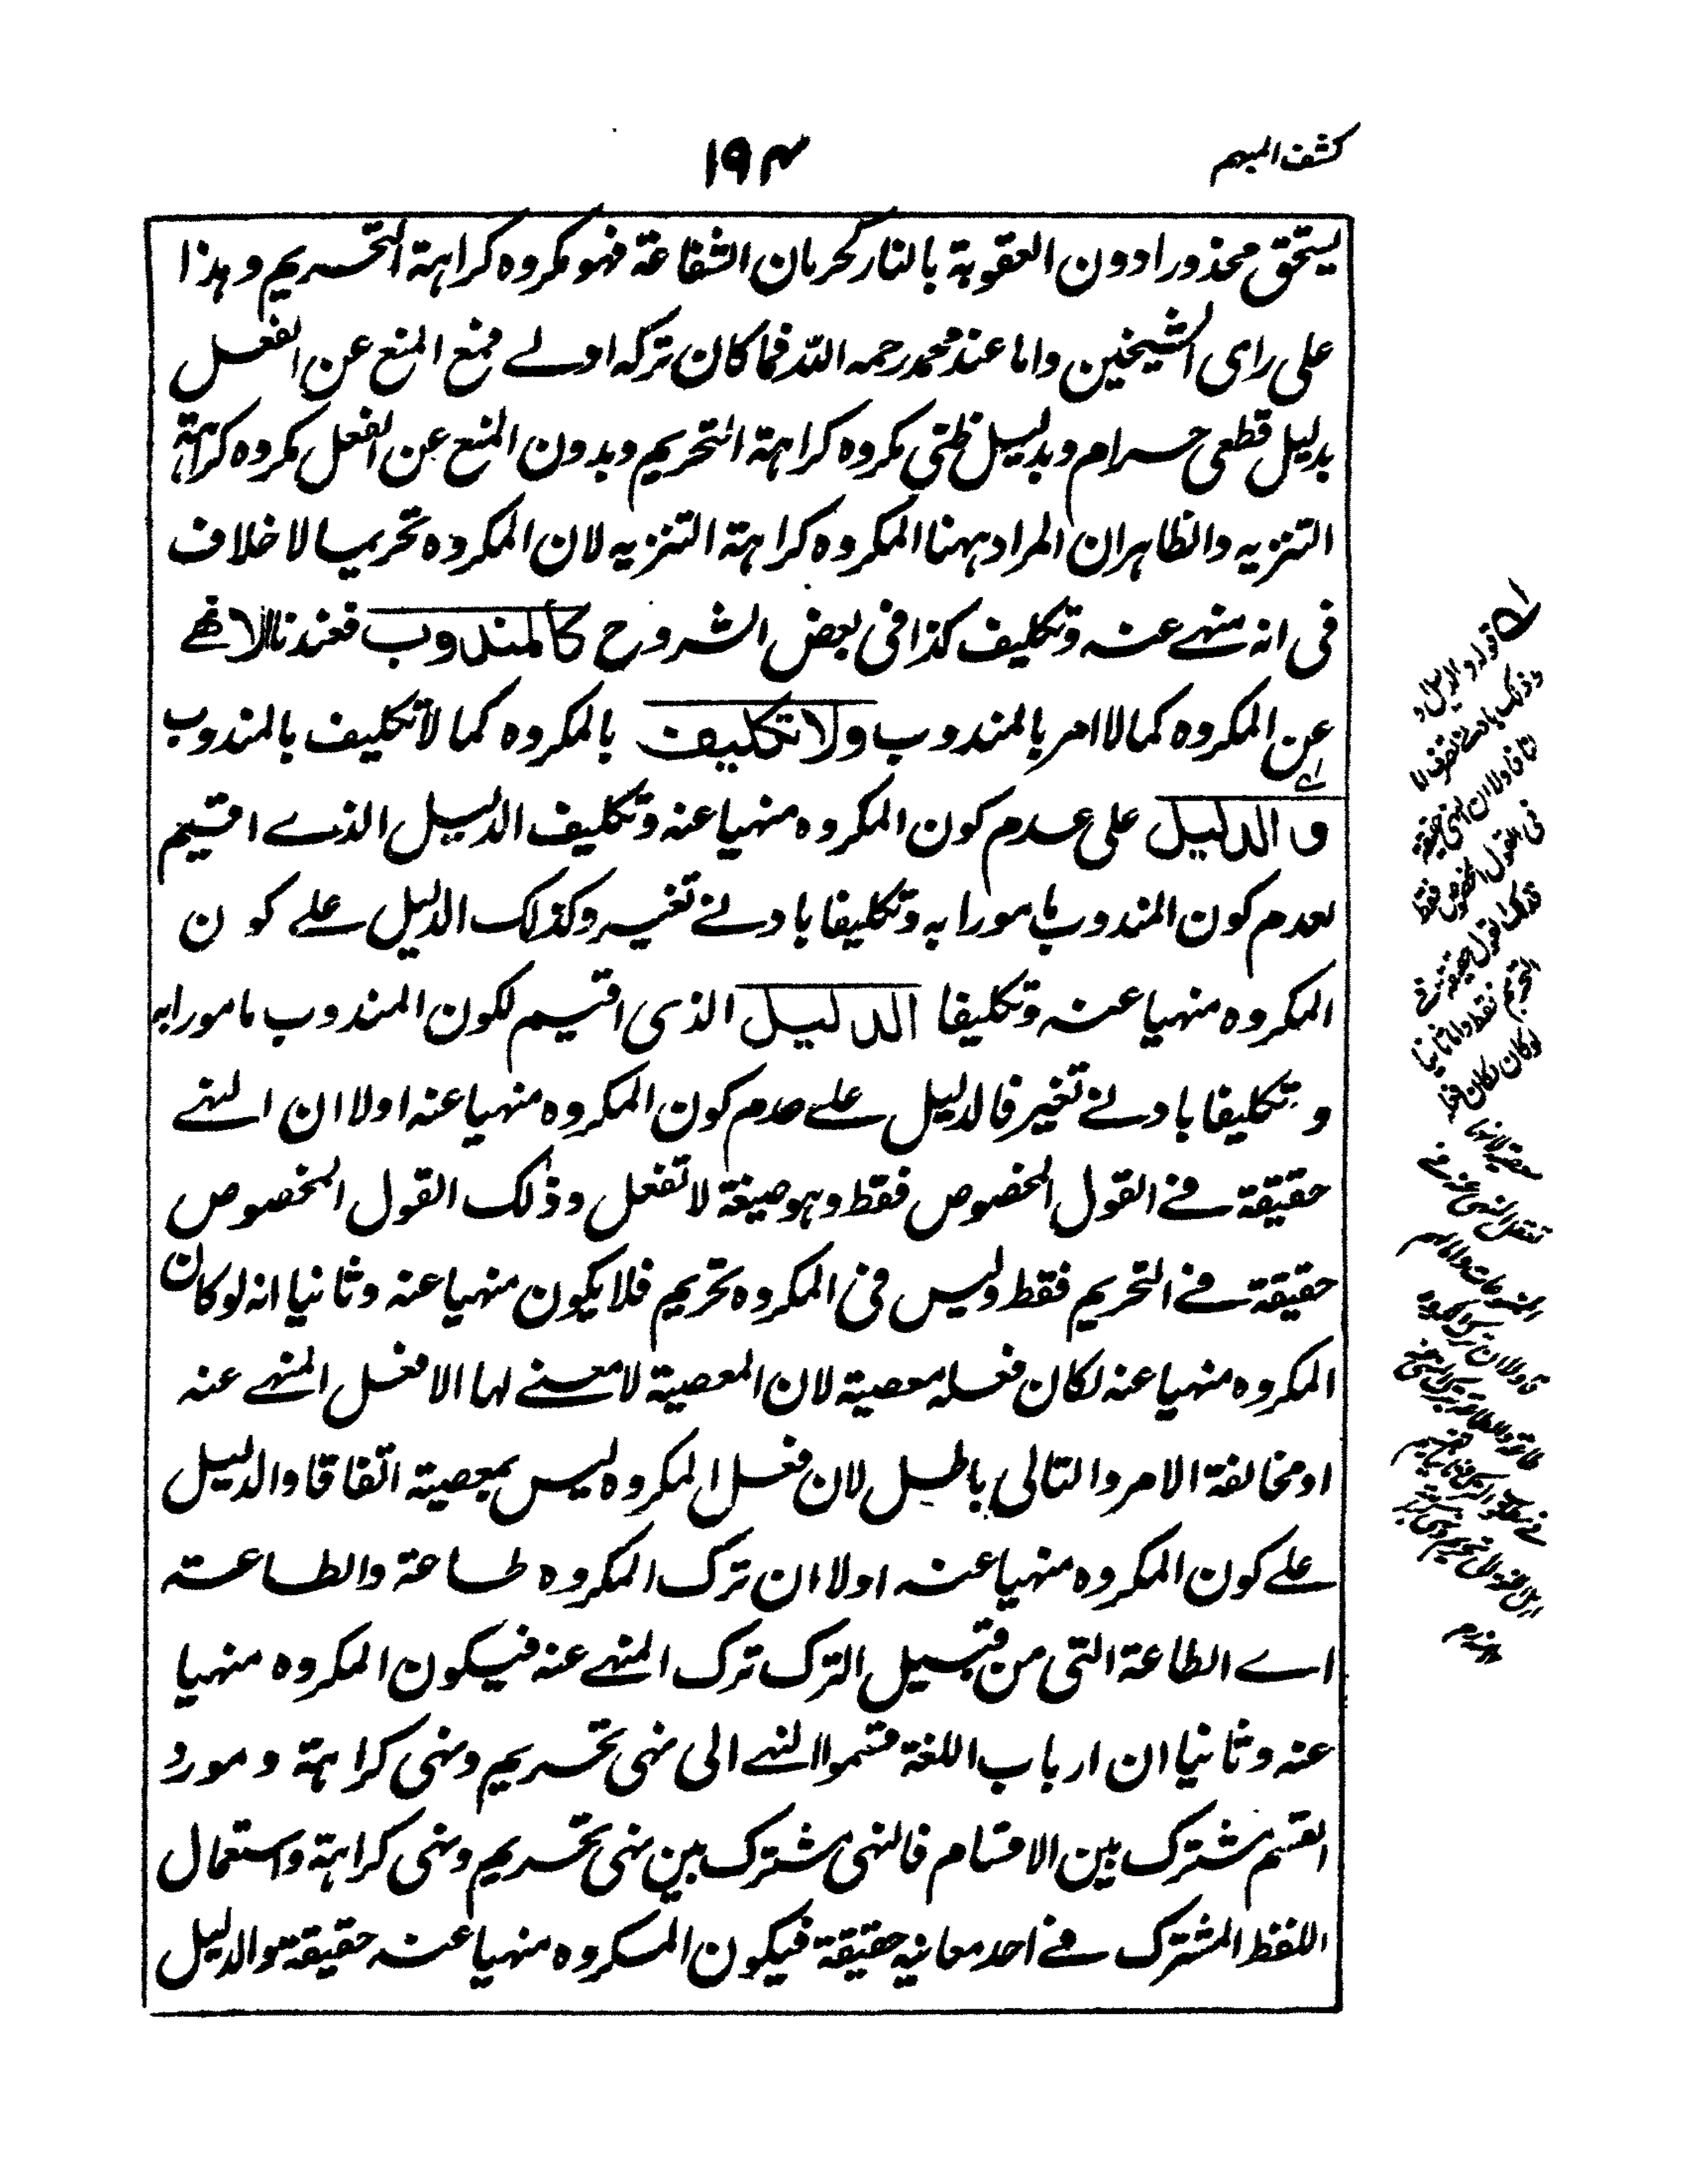 كشف المبهم
١٩٤
يستحق محذورا دون العقوبة بالنار كحرمان الشفاعة فهو مكروه كراهة التحريم وهذا
على راى الشيخين واما عند محمد رحمه الله فما كان تركه اولے فمع المنع عن الفعل
بدليل قطعى حرام وبدليل ظنى مكروه كراهة التحريم وبدون المنع عن الفعل مكروه كراهة
التنزيه والظاهر ان المراد ههنا المكروه كراهة التنزيه لان المكروه تحريما لا خلاف
فى انه منهے عنه وتكليف كذا فى بعض الشروح كالمندوب فعندنا لا نهے
عن المكروه كما لا امر بالمندوب ولا تكليف بالمكروه كما لا تكليف بالمندوب
والدليل على عدم كون المكروه منهيا عنه وتكليف الدليل الذے اقيم
لعدم كون المندوب مامورا به وتكليفا بادنے تغير وكذلك الدليل علے كون
المكروه منهيا عنه وتكليفا الدليل الذى اقيم لكون المندوب مامورا به
وتكليفا بادنے تغير فالدليل علے عدم كون المكروه منهيا عنه اولا ان النهے
حقيقة فے القول المخصوص فقط وهو صيغة لا تفعل وذلك القول المخصوص
حقيقة فے التحريم فقط وليس فى المكروه تحريم فلا يكون منهيا عنه وثانيا انه لو كان
المكروه منهيا عنه لكان فعله معصية لان المعصية لا معنے لها الا فعل المنهے عنه
او مخالفة الامر والتالى باطل لان فعل المكروه ليس بمعصية اتفاقا والدليل
علے كون المكروه منهيا عنه اولا ان ترك المكروه طاعة والطاعة
اے الطاعة التى من قبيل الترك ترك المنهے عنه فيكون المكروه منهيا
عنه وثانيا ان ارباب اللغة قسموا النهے الى نهى تحريم ونهى كراهة ومورد
القسم مشترك بين الاقسام فالنهى مشترك بين نهى تحريم ونهى كراهة واستعمال
اللفظ المشترك فے احد معانيه حقيقة فيكون المكروه منهيا عنه حقيقة والدليل